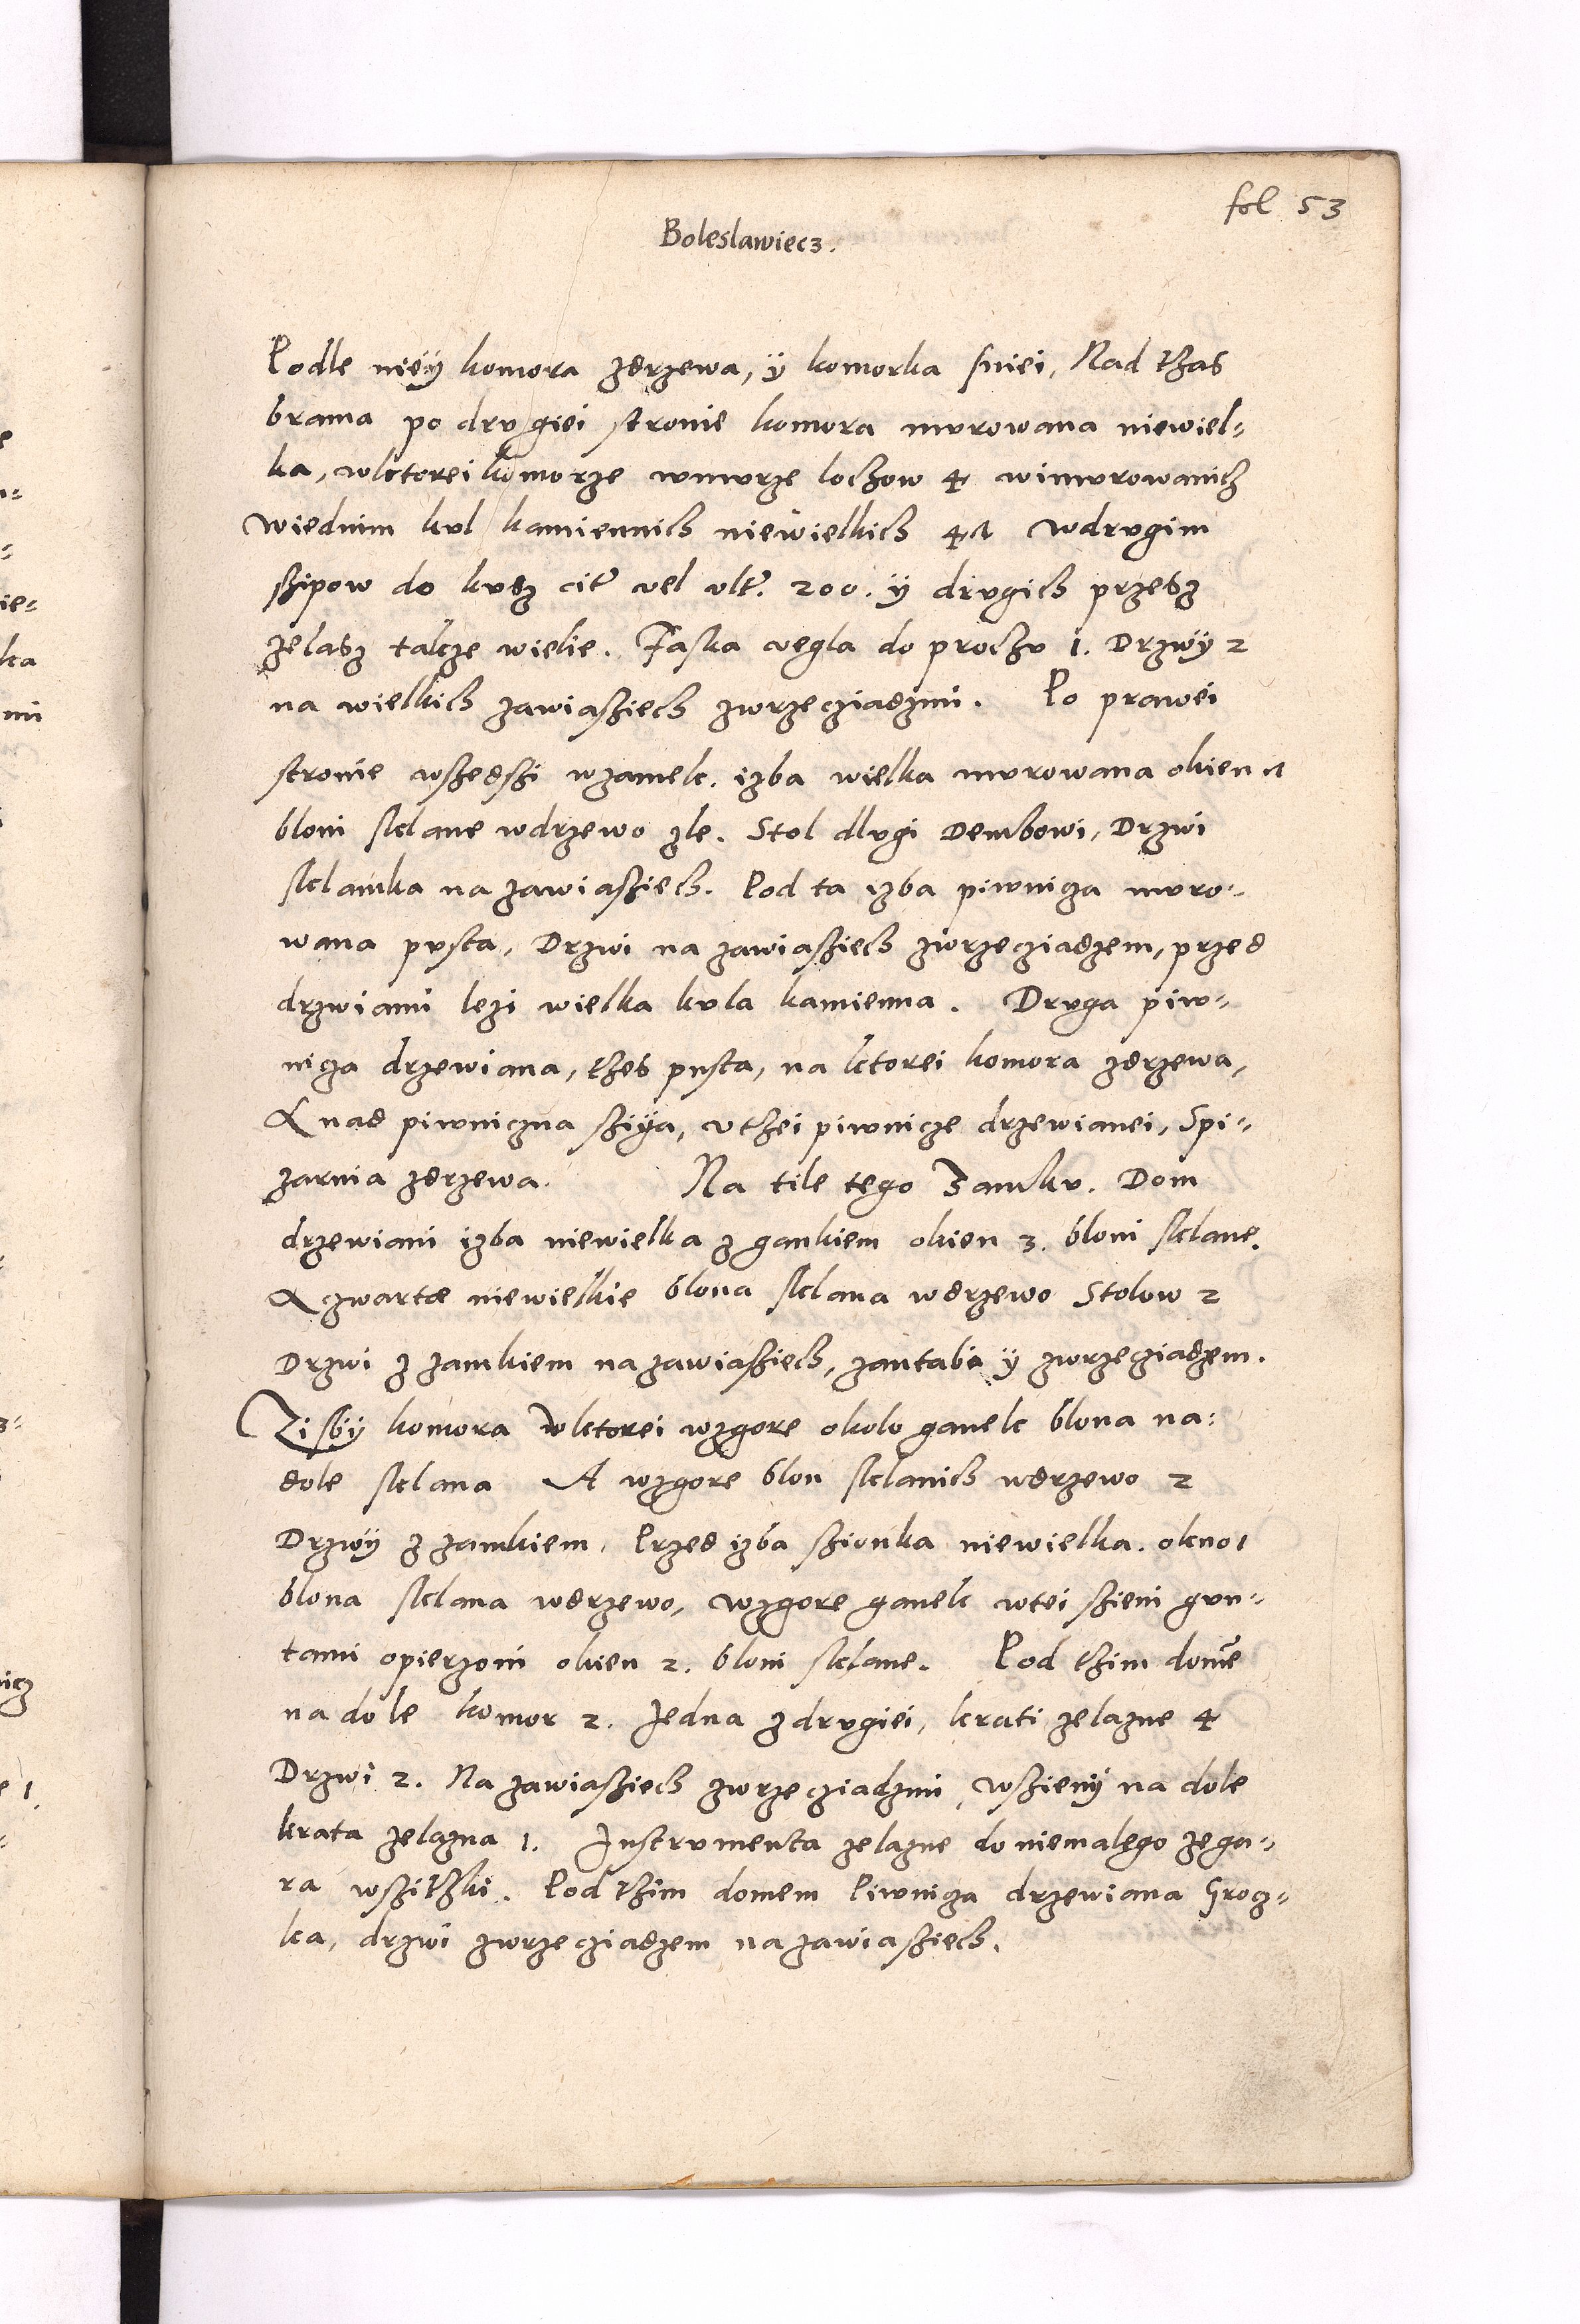 fol 53
Boleslawiecz.
Podle nieÿ komora zdrzewa, ÿ komorka sniei, Nad thas
brama po drvgiei stronie komora mvrowana niewiel-
ka, wktorei komorze wmvrze lochow 4 wimvrowanich
wiednim kvl kamiennich niewielkich 47 wdrvgim
szipow do kvsz cit vel vlt. 200. ÿ drvgich przesz
zelasz takze wiele. Faska vegla do prochv 1. Drzwÿ 2
na wielkich zawiasziech zwrzecziadzmi. Po prawei
stronie wszedszi wzamek. izba wielka mvrowana okien 7
bloni sklane wdrzewo zle. Stol dlvgi Dembowi, Drzwi
sklamka na zawiasziech. Pod ta izba piwnicza mvro-
wana pvsta, Drzwi na zawiasziech zwrzecziadzem, przed
drzwiami lezi wielka kvla kamienna. Drvga piw-
nicza drzewiana, thes pvsta, na ktorei komora zdrzewa,
A nad piwniczna szÿa, vthei piwnicze drzewianei, Spi-
zarnia zdrzewa. Na tile tego Zamkv. Dom
drzewiani izba niewielka z gankiem okien 3. bloni sklane.
A czwarte niewielkie blona sklana wdrzewo Stolow 2
Drzwi z zamkiem na zawiasziech, zantaba ÿ zwrzecziadzem.
Zisbÿ komora wktorei wzgore okolo ganek blona na-
dole sklana A wzgore blon sklanich wdrzewo 2
Drzwÿ z zamkiem. Przed izba szionka niewielka. okno 1
blona sklana wdrzewo, wzgore ganek wtei szieni gvn-
tami opierzoni okien 2. bloni sklane. Pod thim dome
na dole komor 2. Jedna z drvgiei, krati zelazne 4
Drzwi 2. Na zawiasziech zwrzecziadzmi, wszienÿ na dole
krata zelazna 1. Instrvmenta zelazne do niemalego zega-
ra wszithki. Pod thim domem Piwnicza drzewiana Grocz-
ka, drzwi zwrzecziadzem na zawiasziech.